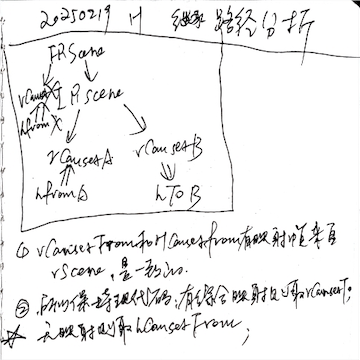 20250219 H 继承路径分析
IRScene
rCausetX IPscene
hfromX
rCausetA rCausetB
hfromA hToB
① rCausetFrom和hCausetFrom有映射
rScene, 是一致
② 所以保持现代码, 有综合映射则取rCausetF;
无映射则取hCausetFrom;